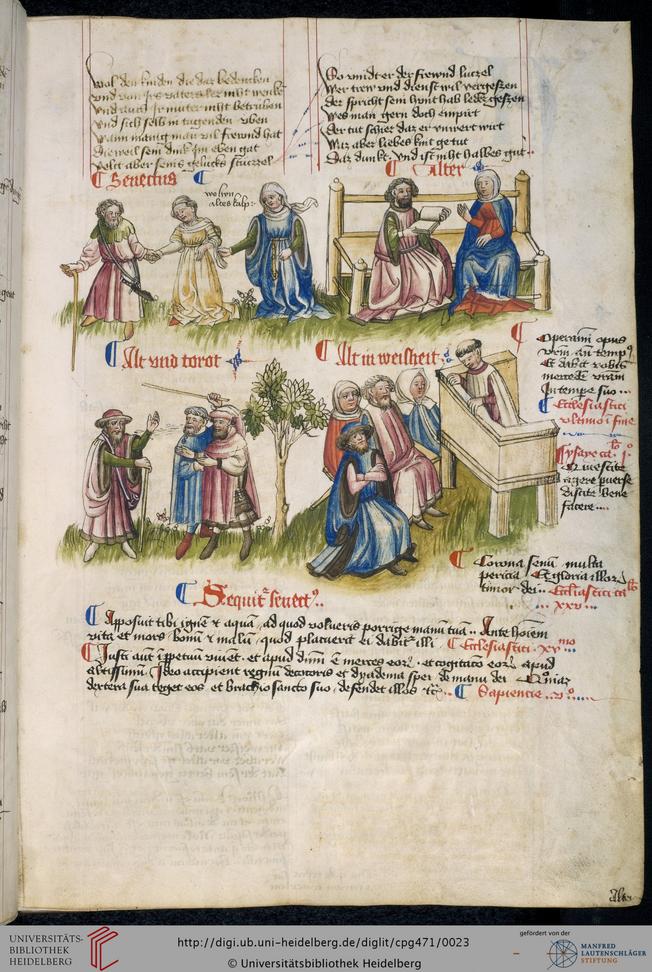 Wol den kinden die daz bedencken
Vnd von Irs vaters ler niht wencken
Vnd auch Ir muter niht betruben
Vnd sich selb in tugenden uben
Wann manig man vil frewnd hat
Die weil sein dink Im eben gat
Velt aber seins gelucks
So vindt er der frewnd luczel
Wer trew vnd dienst wil vergeszen
Der spricht sein hunt hab leder geszen
Wes man gern doch enpirt
Der tut schier daz er vnwert wirt
Waz aber liebes kint getut
Daz dunkt vnd ist niht halbes gut
Senectus
Alter
wolhyn
altes kalp
Alt vnd torot
Alt in weisheit
Operamini opus
vestrum ante tempus
Et dabit vobis
mercedem vestram
In tempore suo
Ecclesiastici
vltimo in fine
Ysaye ca. I.
Quiescite
agere peruerse
discite bene
facere
Corona senum multa
pericia Et gloria illorum
timor dei Ecclesiastici ca
xxv
Sequitur senectus
Apposuit tibi ignem et aquam ad quod volueris porrige manum tuam Ante hominem
vita et mors bonum et malum quod placuerit ei dabitur illi Ecclesiastici xv
Justi autem imperpetuum viuent et apud dominum est merces eorum et cogitacio eorum apud
altissimum Ideo accipient regnum decoris et dyadema spei de manu dei Quoniam
dextera sua teget eos et brachio sancto suo defendet illos etc. Sapiencie v
UNIVERSITÄTS-
BIBLIOTHEK
HEIDELBERG
http://digi.ub.uni-heidelberg.de/diglit/cpg471/0023
© Universitätsbibliothek Heidelberg
gefördert von der
MANFRED
LAUTENSCHLÄGER
STIFTUNG